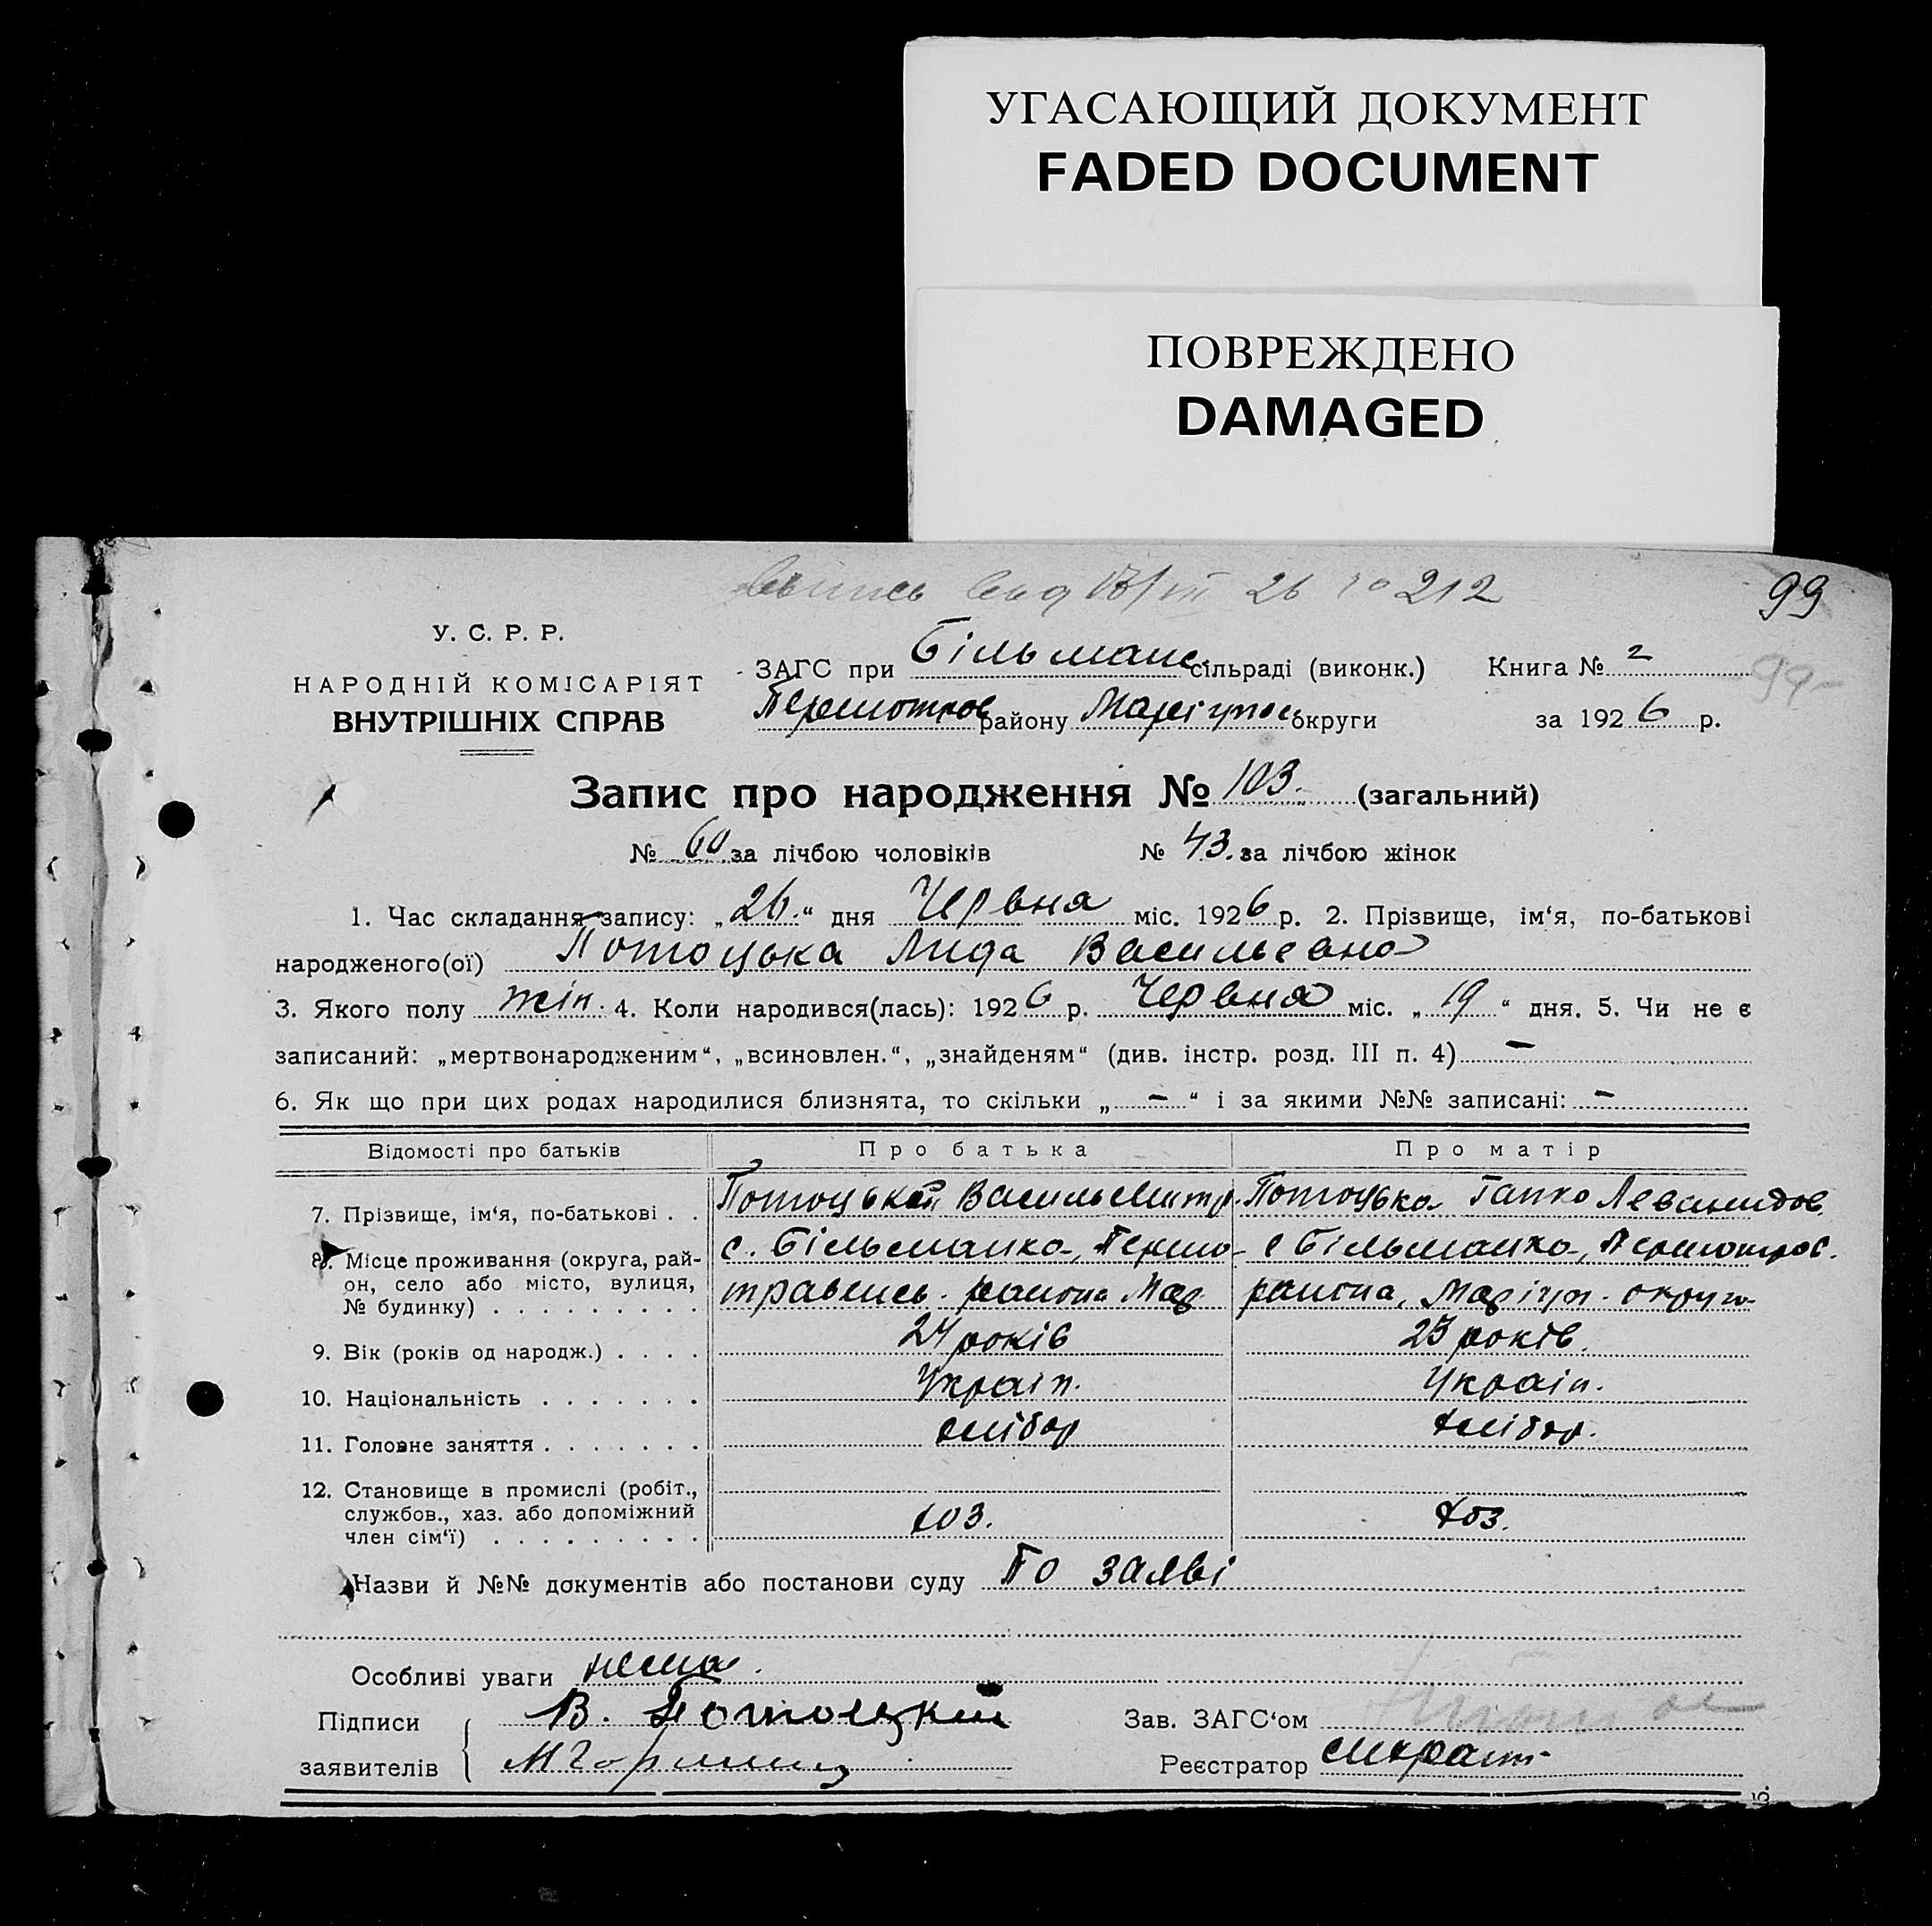 УГАСАЮЩИЙ ДОКУМЕНТ
FADED DOCUMENT
ПОВРЕЖДЕНО
DAMAGED
26 212
99
У. С. Р. Р.
НАРОДНІЙ КОМІСАРІЯТ
ВНУТРІШНІХ СПРАВ
ЗАГС при Більманс. сільраді (виконк.) Книга № 2
99
району округи за 1926 р.
Запис про народження № 103. (загальний)
№ 60 за лічбою чоловіків № 43. за лічбою жінок
1. Час складання запису: „26.“ дня Червня міс. 1926 р. 2. Прізвище, ім‘я, по-батькові
народженого(ої) Потоцька Лида Васильевна
3. Якого полу жін. 4. Коли народився(лась): 1926 р. Червня міс. „19“ дня. 5. Чи не є
записаний: „мертвонародженим“, „всиновлен.“, „знайденям“ (див. інстр. розд. III п. 4) —
6. Як що при цих родах народилися близнята, то скільки „—“ і за якими №№ записані: —
Відомості про батьків Про батька Про матір
7. Прізвище, ім‘я, по-батькові . . Потоцький Василь Потоцька
8. Місце проживання (округа, рай-
он, село або місто, вулиця,
№ будинку) . . . . . . . . .
с. Більманка, Першо- с Більманка, Першотрав.
травенсь. района Мар. района, Маріуп. округи
9. Вік (років од народж.) . . . . 24 років 23 років.
10. Національність . . . . . . . Україн. Україн.
11. Головне заняття . . . . . . . хлібор хлібор.
12. Становище в промислі (робіт.,
службов., хаз. або допоміжний
член сім‘ї) . . . . . . . . . хоз. хоз.
Назви й №№ документів або постанови суду По заяві
Особливі уваги нема.
Підписи В. Потоцкий Зав. ЗАГС‘ом
заявителів Реєстратор